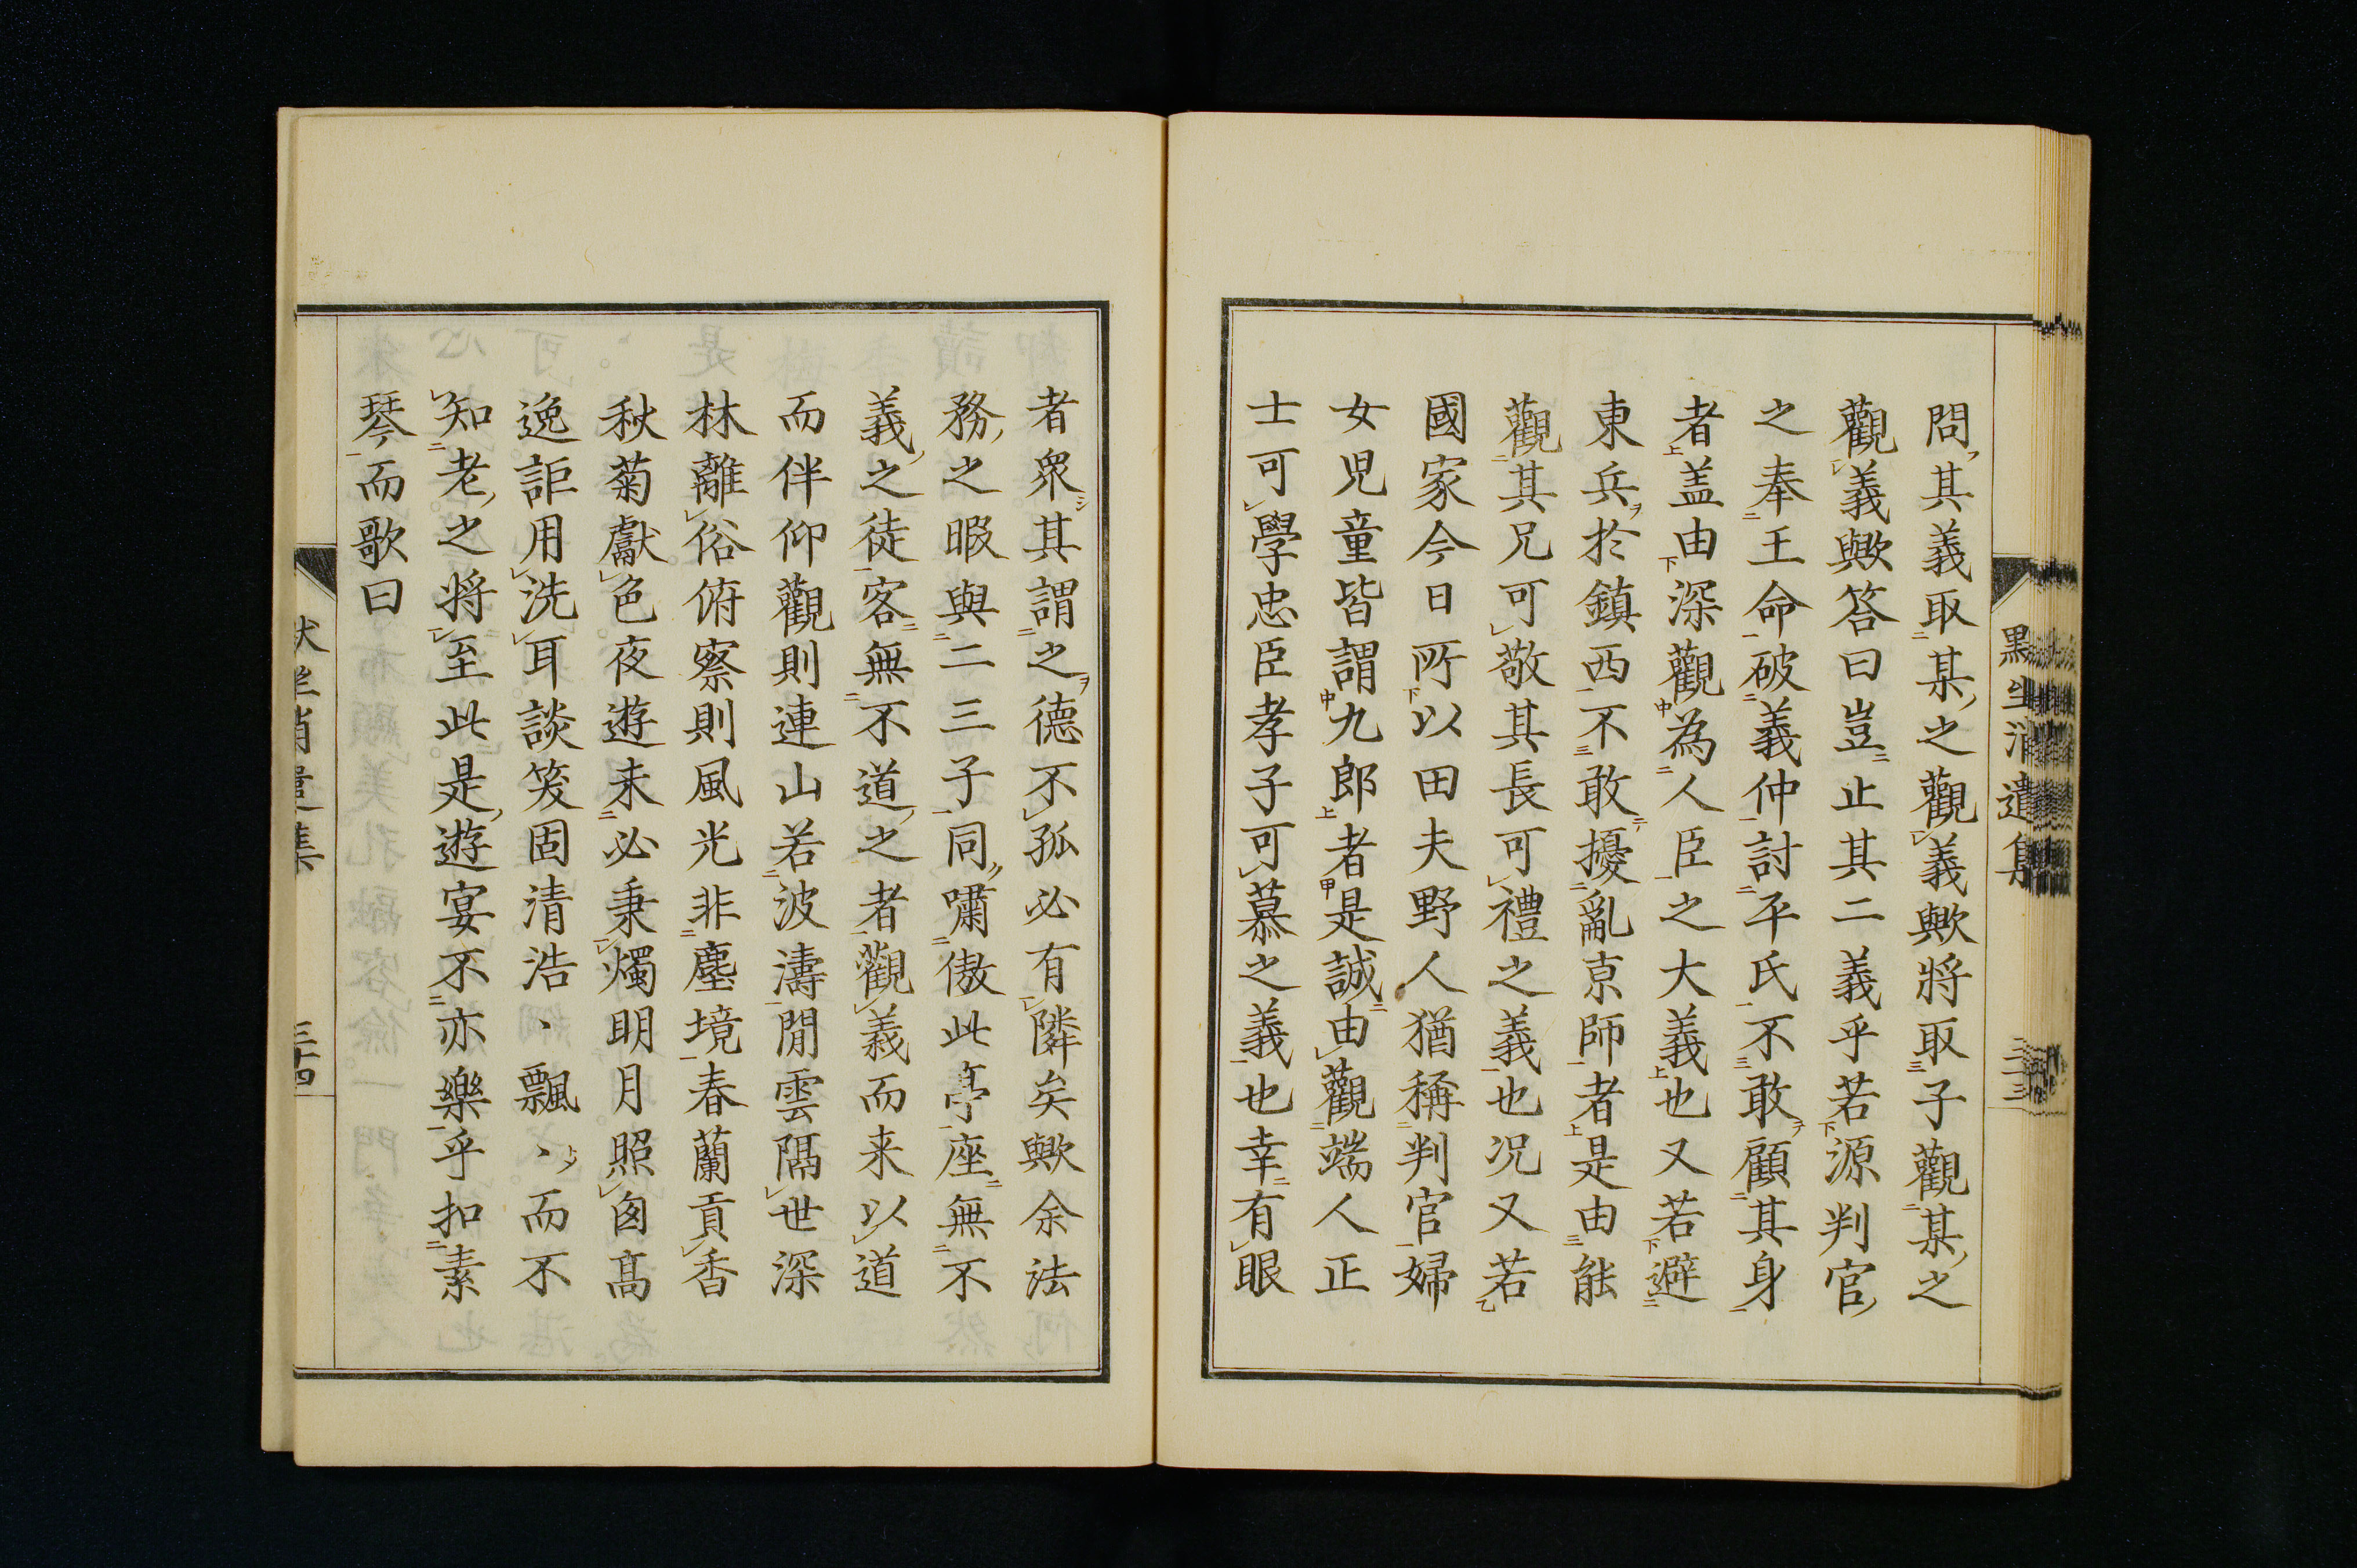 問其義取某之觀義歟將取子觀某之
觀義歟答曰豈止其二義乎若源判官
之奉王命破義仲討平氏不敢顧其身
者盖由深觀為人臣之大義也又若避
東兵於鎮西不敢擾亂京師者是由能
觀其兄可敬其長可禮之義也况又若
國家今日所以田夫野人猶稱判官婦
女児童皆謂九郎者是誠由觀端人正
士可學忠臣孝子可慕之義也幸有眼
者衆其謂之德不孤必有隣矣歟余法
務之暇與二三子同嘯傲此亭座無不
義之徒客無不道之者觀義而来以道
而伴仰觀則連山若波濤閒雲隔世深
林離俗俯察則風光非塵境春蘭貢香
秋菊獻色夜遊未必秉燭明月照囱髙
逸詎用洗耳談笑固清浩、飄、而不
知老之將至此是遊宴不亦樂乎扣素
琴而歌曰
三十四